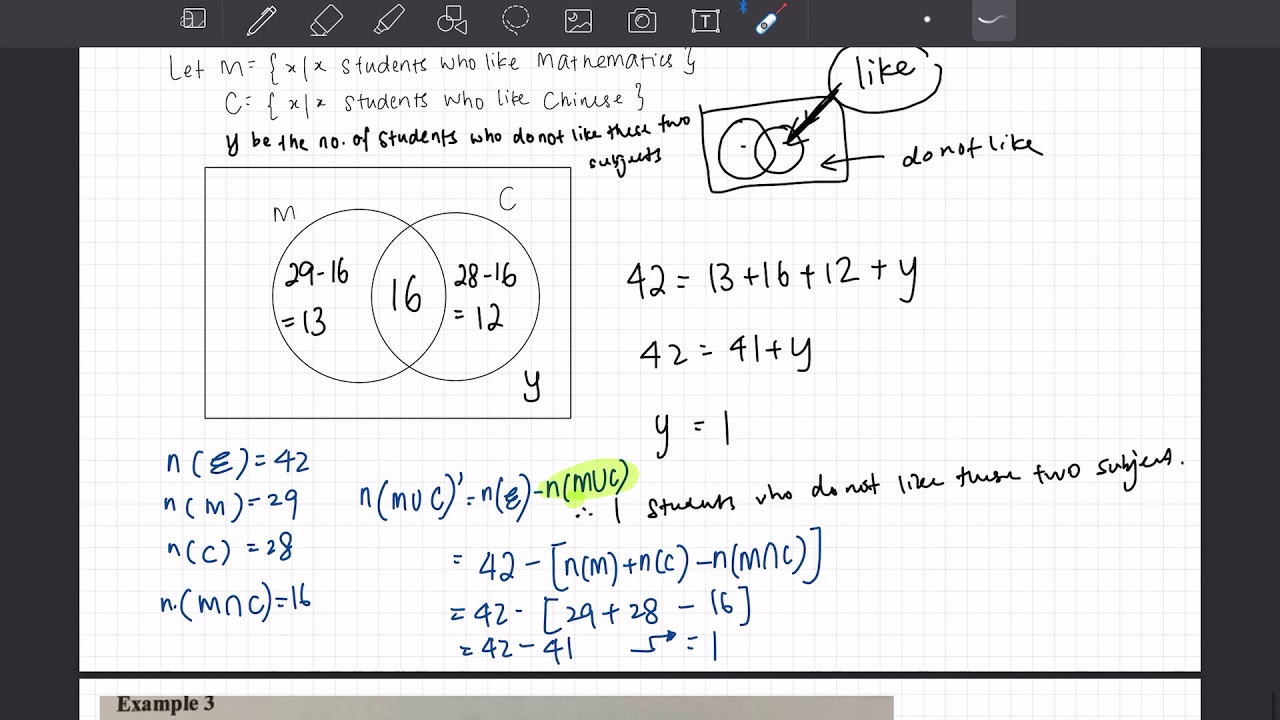 Let M = { x | x students who like Mathematics }
C = { x | x students who like Chinese }
y be the no. of students who do not like these two
subjects
like
do not like
M
C
29-16
= 13
16
28-16
= 12
y
42 = 13 + 16 + 12 + y
42 = 41 + y
y = 1
∴ 1 students who do not like these two subject.
n(ℰ) = 42
n(M) = 29
n(C) = 28
n.(M∩C) = 16
n(M∪C)' = n(ℰ) - n(M∪C)
= 42 - [n(M) + n(C) - n(M∩C)]
= 42 - [29 + 28 - 16]
= 42 - 41
= 1
Example 3
T